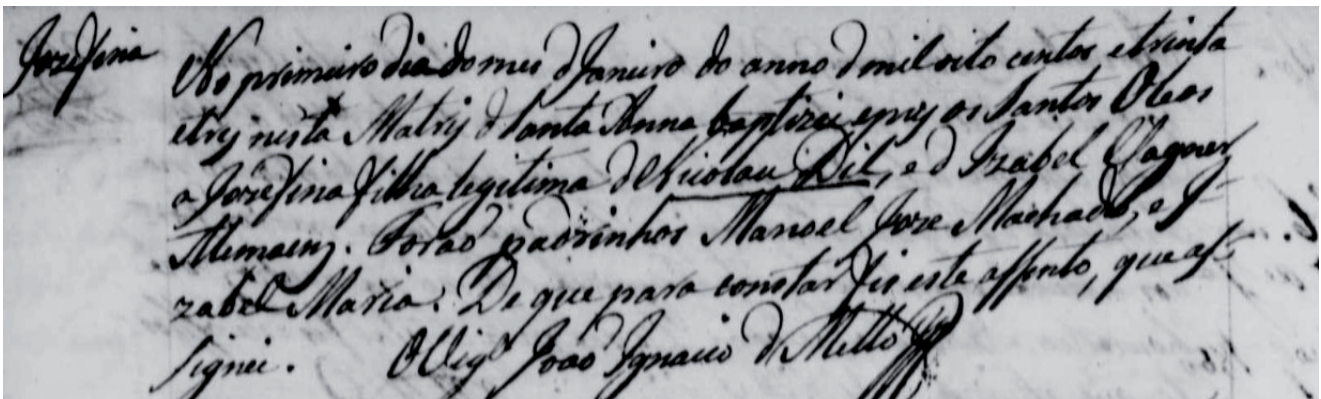 Jozefina
No primeiro dia do mes d Janeiro do anno d mil oito centos e trinta
e trez nesta Matriz d Santa Anna baptizei, e puz os Santos Oleos
a Jozefina filha legitima d Nicolau Dil, e d Izabel Vagner
Alemaens. Forão padrinhos Manoel Joze Machado, e I-
zabel Maria. De que para constar fis este assento, que as-
signei. O Vigº João Ignacio d Mello